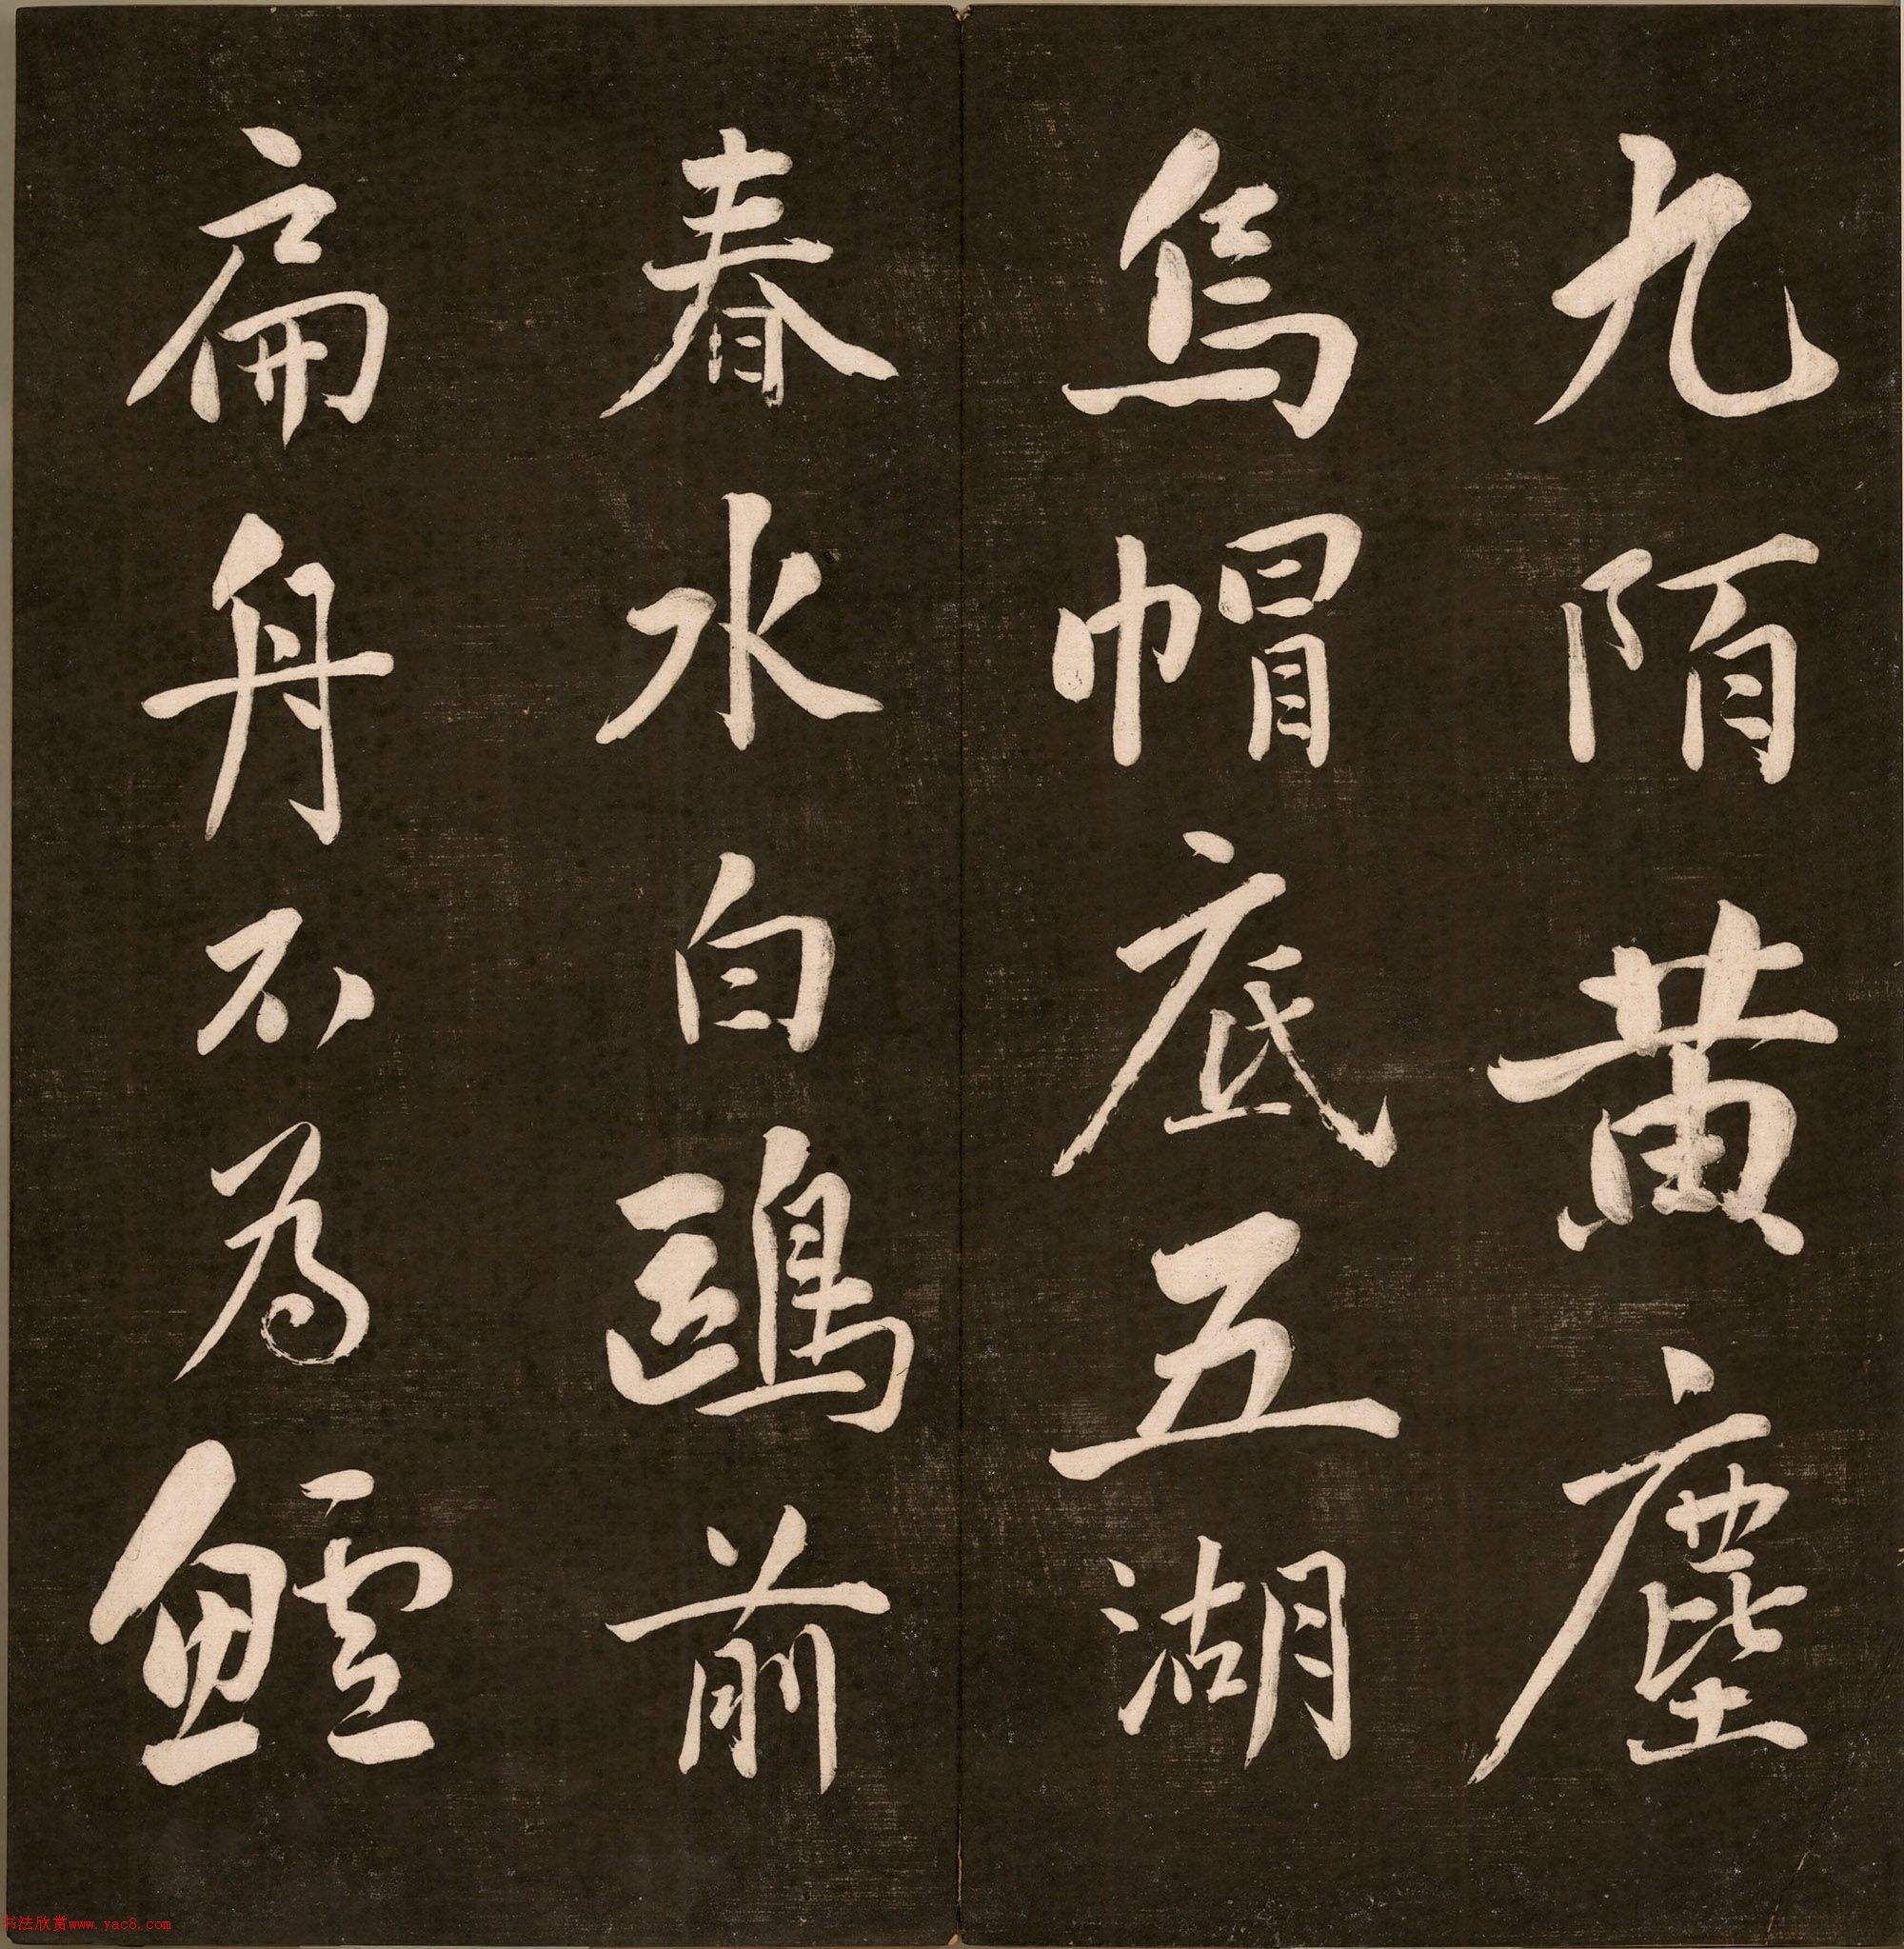 九陌黄塵
烏帽底五湖
春水白鷗前
扁舟不為鱸
书法欣赏www.yac8.com